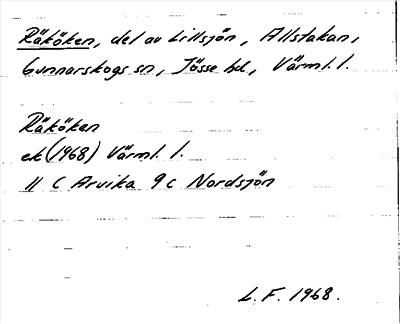 Räköken, del av Lillsjön, Allstakan,
Gunnarskogs sn, Jösse hd, Värml. l.
Räköken
ek (1968) Värml. l.
11 C Arvika 9 c Nordsjön
L. F. 1968.